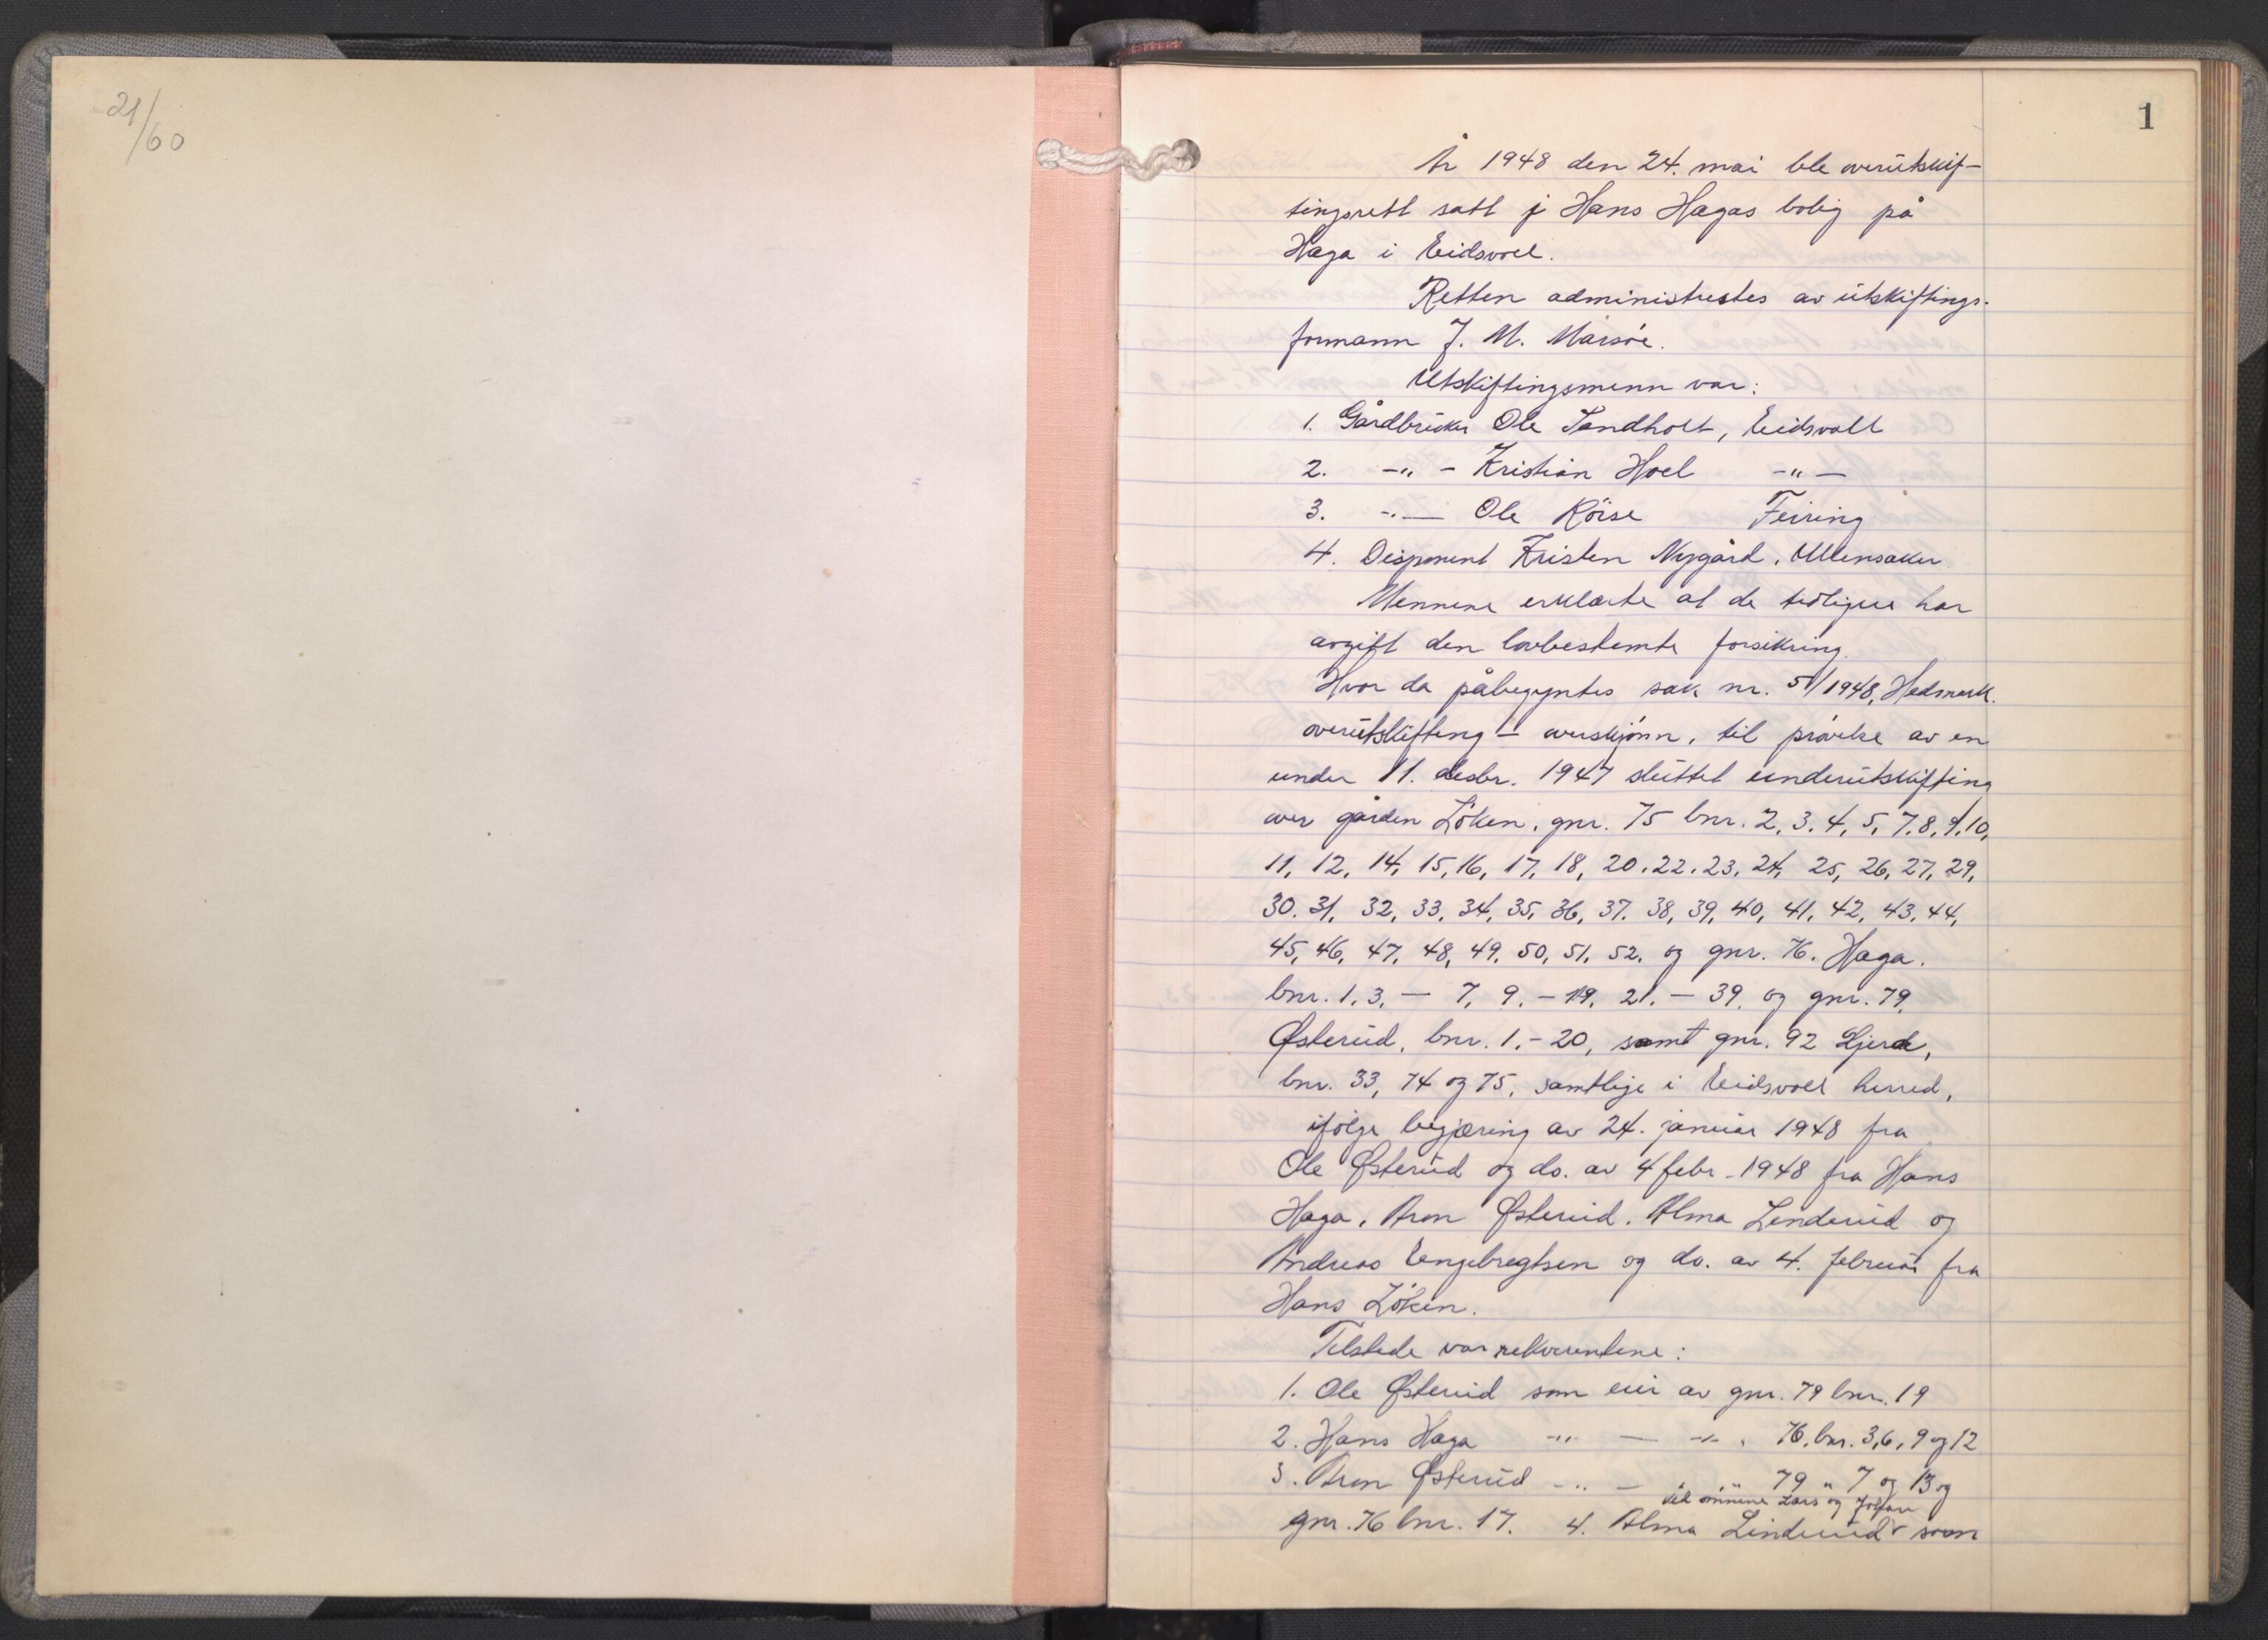 21/60
1
År 1948 den 24. mai ble overutskif-
tingsrett satt i Hans Hagas bolig på
Haga i Eidsvoll.
Retten administrertes av utskiftings-
formann J. M. Marsøe.
Utskiftingsmenn var:
1. Gårdbruker Ole Sandholt, Eidsvoll
2. -"- Kristian Hoel -"-
3. -"- Ole Röise Feiring
4. Disponent Kristen Nygård, Ullensaker
Mennene erklærte at de tidligere har
avgitt den lovbestemte forsikring.
Hvor da påbegyntes sak nr. 5/1948, Hedmark
overutskifting - overskjönn, til prövelse av en
under 11. desbr. 1947 sluttet underutskifting
over gården Löken, gnr. 75 bnr. 2, 3, 4, 5, 7, 8, 9, 10,
11, 12, 14, 15, 16, 17, 18, 20, 22, 23, 24, 25, 26, 27, 29,
30, 31, 32, 33, 34, 35, 36, 37, 38, 39, 40, 41, 42, 43, 44,
45, 46, 47, 48, 49, 50, 51, 52, og gnr. 76. Haga.
bnr. 1, 3, - 7, 9, - 19, 21, - 39 og gnr. 79,
Østerud, bnr. 1, - 20, samt gnr. 92
bnr. 33, 74 og 75, samtlige i Eidsvoll herred,
ifölge begjæring av 24. januar 1948 fra
Ole Østerud og do. av 4 febr. 1948 fra Hans
Haga, Aron Østerud, Alma Linderud og
Andreas Engebregtsen og do. av 4. februar fra
Hans Löken.
Tilstede var rekvirentene:
1. Ole Østerud som eier av gnr. 79 bnr. 19
2. Hans Haga -"- - -"- 76, bnr. 3, 6, 9 og 12
3. Aron Østerud -"- - -"- 79 " 7 og 13 og
ved sönnene Lars og Johan
gnr. 76 bnr. 17. 4. Alma Linderud som